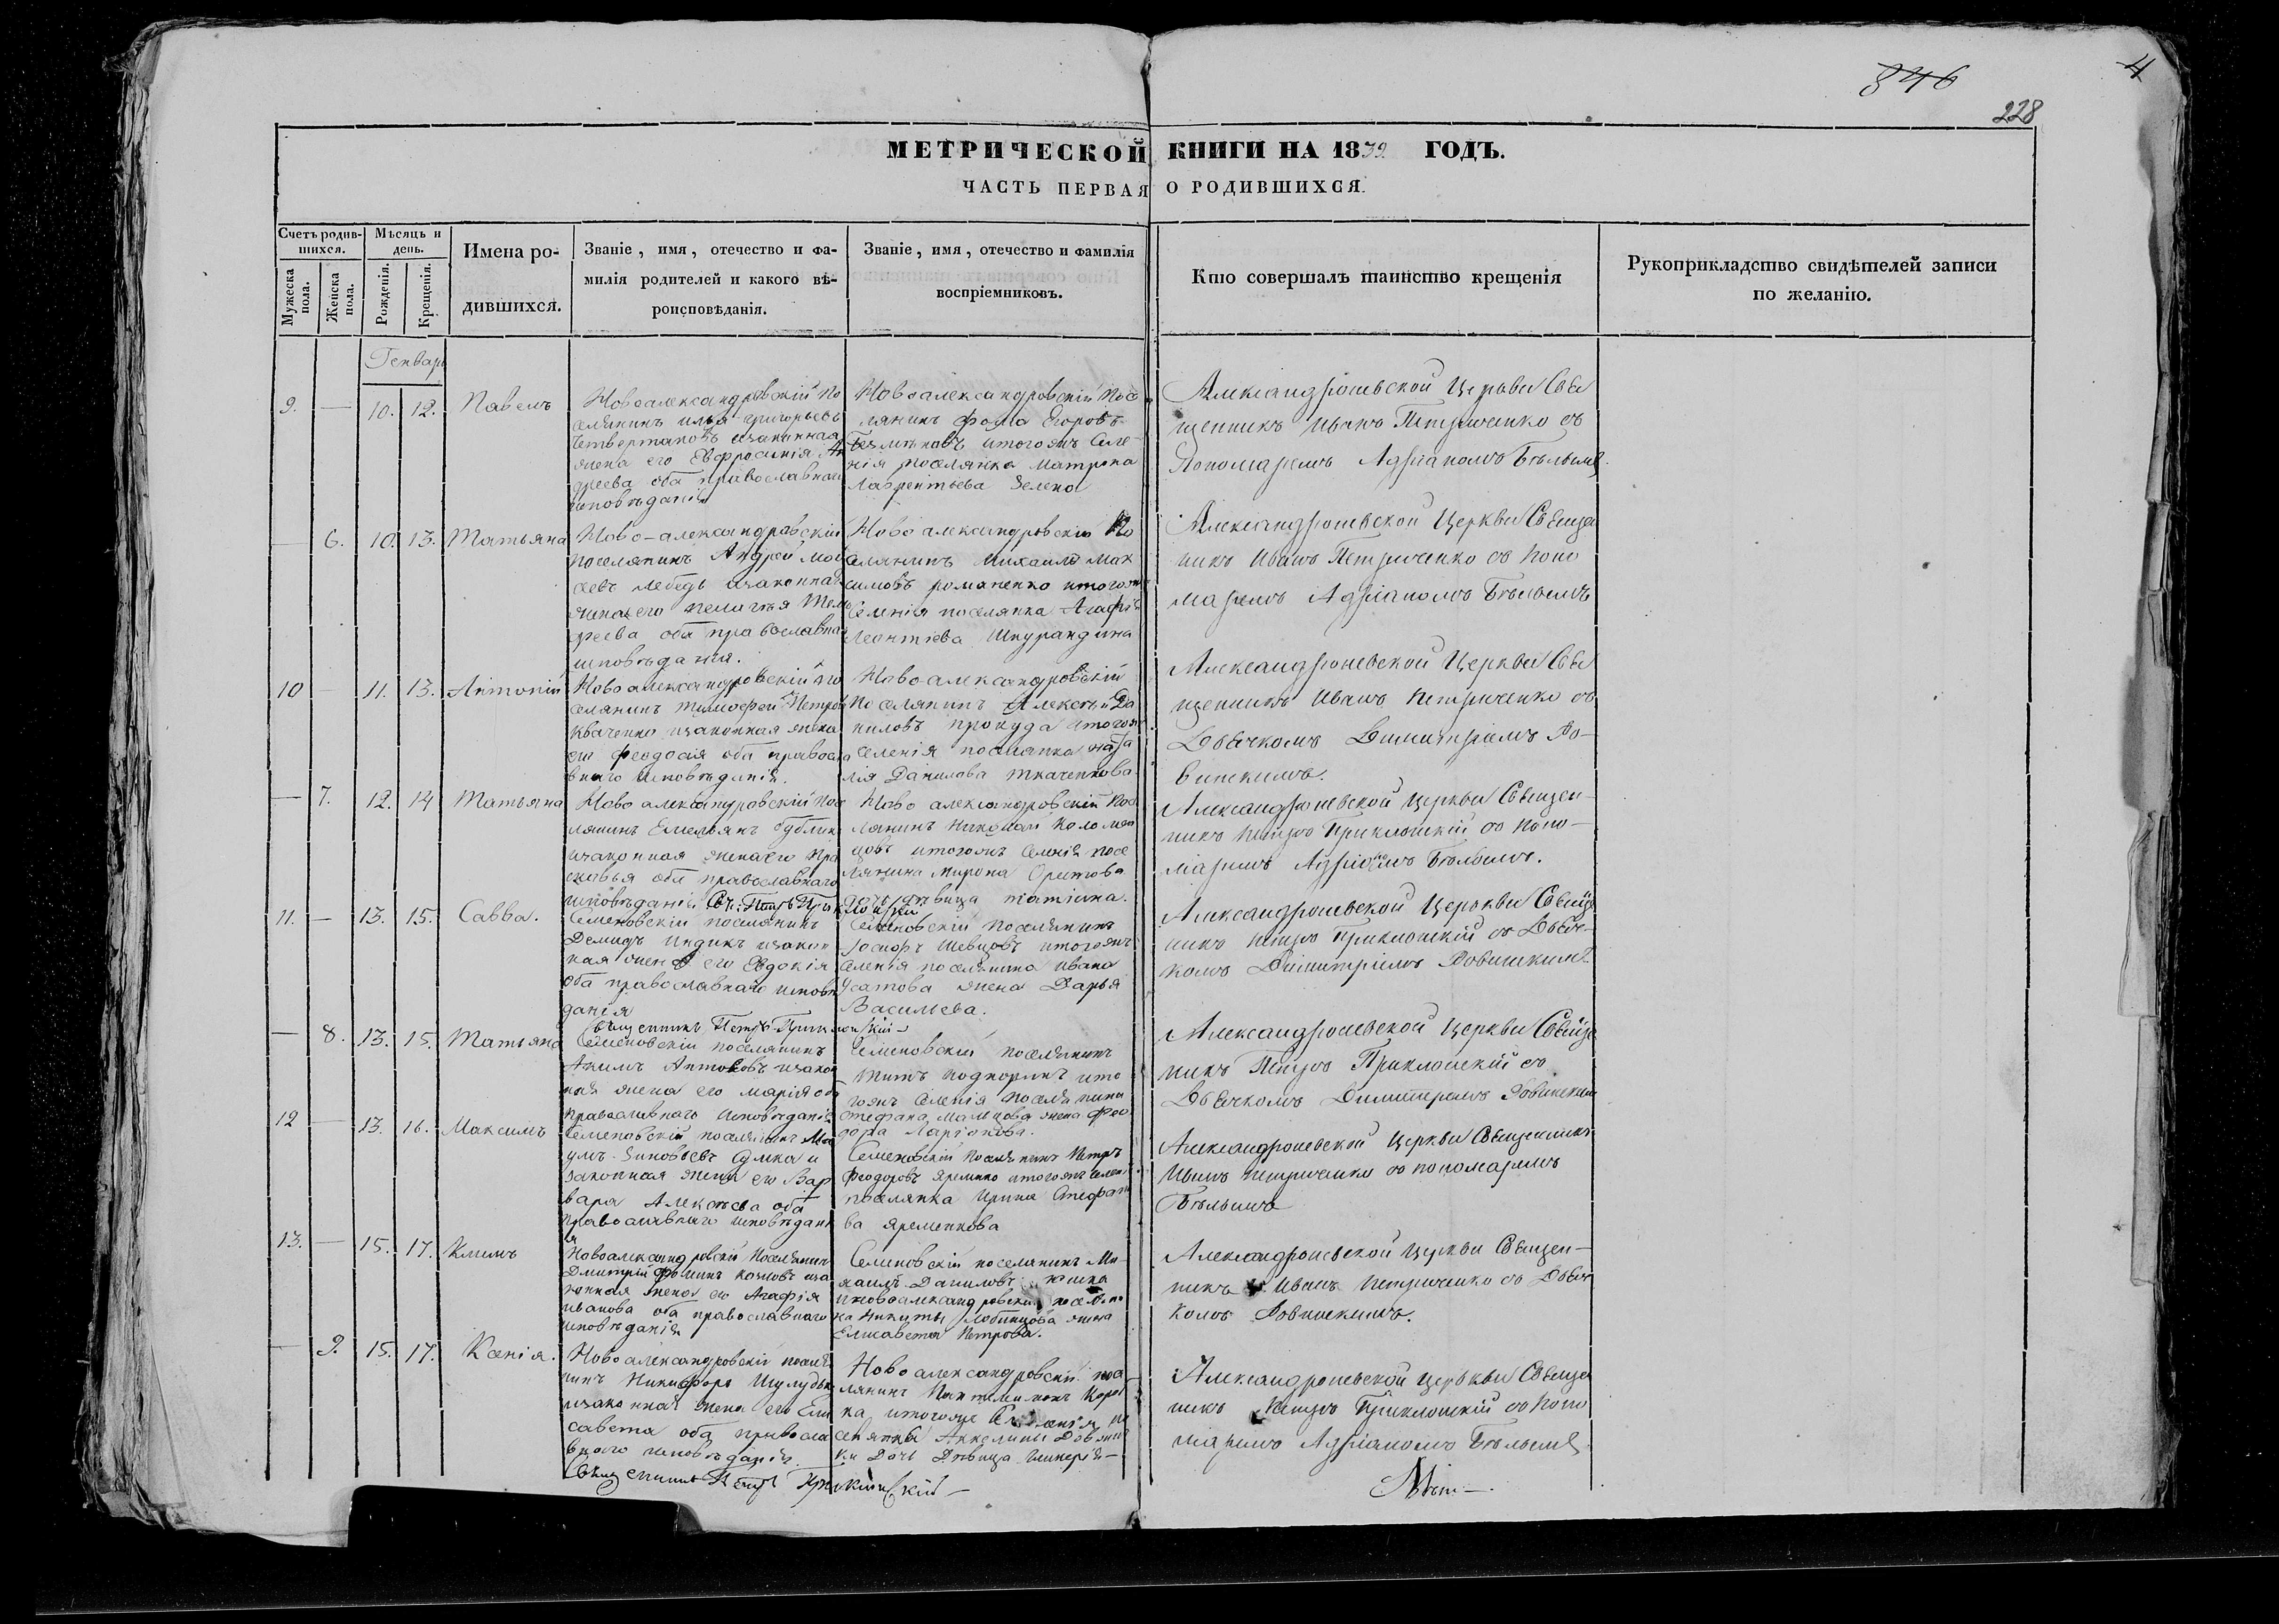 846
4
228
МЕТРИЧЕСКОЙ КНИГИ НА 1839 ГОДЪ.
ЧАСТЬ ПЕРВАЯ О РОДИВШИХСЯ.
Счетъ родив-
шихся.
Мужеска
пола.
Женска
пола.
Мѣсяцъ и
день.
Рожденія.
Крещенія.
Имена ро-
дившихся.
Званіе, имя, отечество и фа-
милія родителей и какого вѣ-
роисповѣданія.
Званіе, имя, отечество и фамилія
воспріемниковъ.
Кто совершалъ таинство крещенія
Рукоприкладство свидѣтелей записи
по желанію.
Генварь
9. — 10. 12. Павелъ
Новоалександровскій по
селянинъ илья григорьевъ
четвертаковъ изаконная
жена его Евфросинія Ан
дреева оба православнаго
исповѣданія
Новоалександровскій посе
лянинъ Фома Егоровъ
итогожъ Селе
нія поселянка Матрона
Лаврентьева Зелена
Александроневской Церкви Свя
щенникъ Иванъ Петриченко съ
Пономаремъ Адріаномъ Бѣлымъ
— 6. 10. 13. Татьяна
Ново-александровскій
поселянинъ Андрей Мои
сеевъ лебедь изаконная
жена его пелагея Тимо
феева оба православна
исповѣданія.
Новоалександровскій По
селянинъ Михаилъ Мак
симовъ романенко итогожъ
Селенія поселянка Агафія
Леонтіева Шкурандина
Александроневской Церкви Священ
никъ Иванъ Петриченко съ Поно
маремъ Адріаномъ Бѣлымъ
10 — 11. 13. Антоній
Новоалександровскій по
селянинъ тимофей Петров
Кваченко изаконная жена
его феодосія оба правосла
внаго исповѣданія.
Новоалександровскій
Поселянинъ Алексѣй Да
ниловъ прокуда итогожъ
селенія поселянка ната
лія Данилова ткаченкова
Александроневской Церкви Свя
щенникъ Иванъ Петриченко съ
Дьячкомъ Димитріемъ Ро-
винскимъ.
— 7. 12. 14 Татьяна
Новоалександровскій посе
лянинъ Емельянъ
изаконная жена его Пра
сковья оба православнаго
исповѣданія Св: Петръ Приклонскій
Новоалександровскій посе
лянинъ Николай Коломей
цовъ итогожъ Селенія посе
лянина Мирона
дочь дѣвица татіана.
Александроневской Церкви Священ-
никъ Петръ Приклонскій съ Поно-
маремъ Адріаномъ Бѣлымъ.
11. — 13. 15. Савва.
Семеновскій поселянинъ
Демидъ Индикъ изакон
ная жена его Евдокія
оба православнаго исповѣ
данія
Священникъ Петръ Приклонскій —
Семеновскій поселянинъ
Іосифъ Шевцовъ итогожъ
селенія поселянина Ивана
Усатова жена Дарья
Васильева.
Александроневской Церкви Священ
никъ Петръ Приклонскій съ Дьяч-
комъ Димитріемъ Ровинскимъ
— 8. 13. 15. Татьяна
Семеновскій поселянинъ
Акимъ Антоновъ изакон
ная жена его марія оба
православнаго исповѣданія
Семеновскій поселянинъ
Титъ ито
гожъ Селенія поселянина
Стефана Малцова жена Фео
дора Ларіонова.
Александроневской Церкви Священ
никъ Петръ Приклонскій съ
Дьячкомъ Димитріемъ Ровинским
12 — 13. 16. Максимъ
Семеновскій поселянинъ
Зиновьевъ Сумка и
законная жена его Вар
вара Алексѣева оба
православнаго исповѣдан
ія
Семеновскій поселянинъ Петръ
Феодоровъ яременко итогожъ селені
поселянка Ирина Стефано
ва яременкова
Александроневской Церкви Священникъ
Иванъ Петриченко съ пономаремъ
Бѣлымъ
13. — 15. 17. Климъ
Новоалександровскій поселянинъ
Дмитрій Фоминъ Козловъ иза
конная жена его Агафія
иванова оба православнаго
исповѣданія
Семеновскій поселянинъ Ми-
хаилъ Даниловъ
иновоалександровскій поселяни
на Никиты жена
Елисавета Петрова.
Александроневской Церкви Священ-
никъ Иванъ Петриченко съ Дьяч
комъ Ровинскимъ.
— 9. 15. 17. Ксенія.
Новоалександровскій поселя
нинъ Никифоръ Шулудько
изаконная жена его Ели
савета оба правосла
внаго исповѣданія.
Священникъ Петръ Приклонскій —
Новоалександровскій посе
лянинъ Пантелимонъ Короб
ка итогожъ Селенія по
селянки Акилины
ки Дочь Дѣвица Гликерія —
Александроневской Церкви Священ
никъ Петръ Приклонскій съ Поно
маремъ Адріаномъ Бѣлымъ